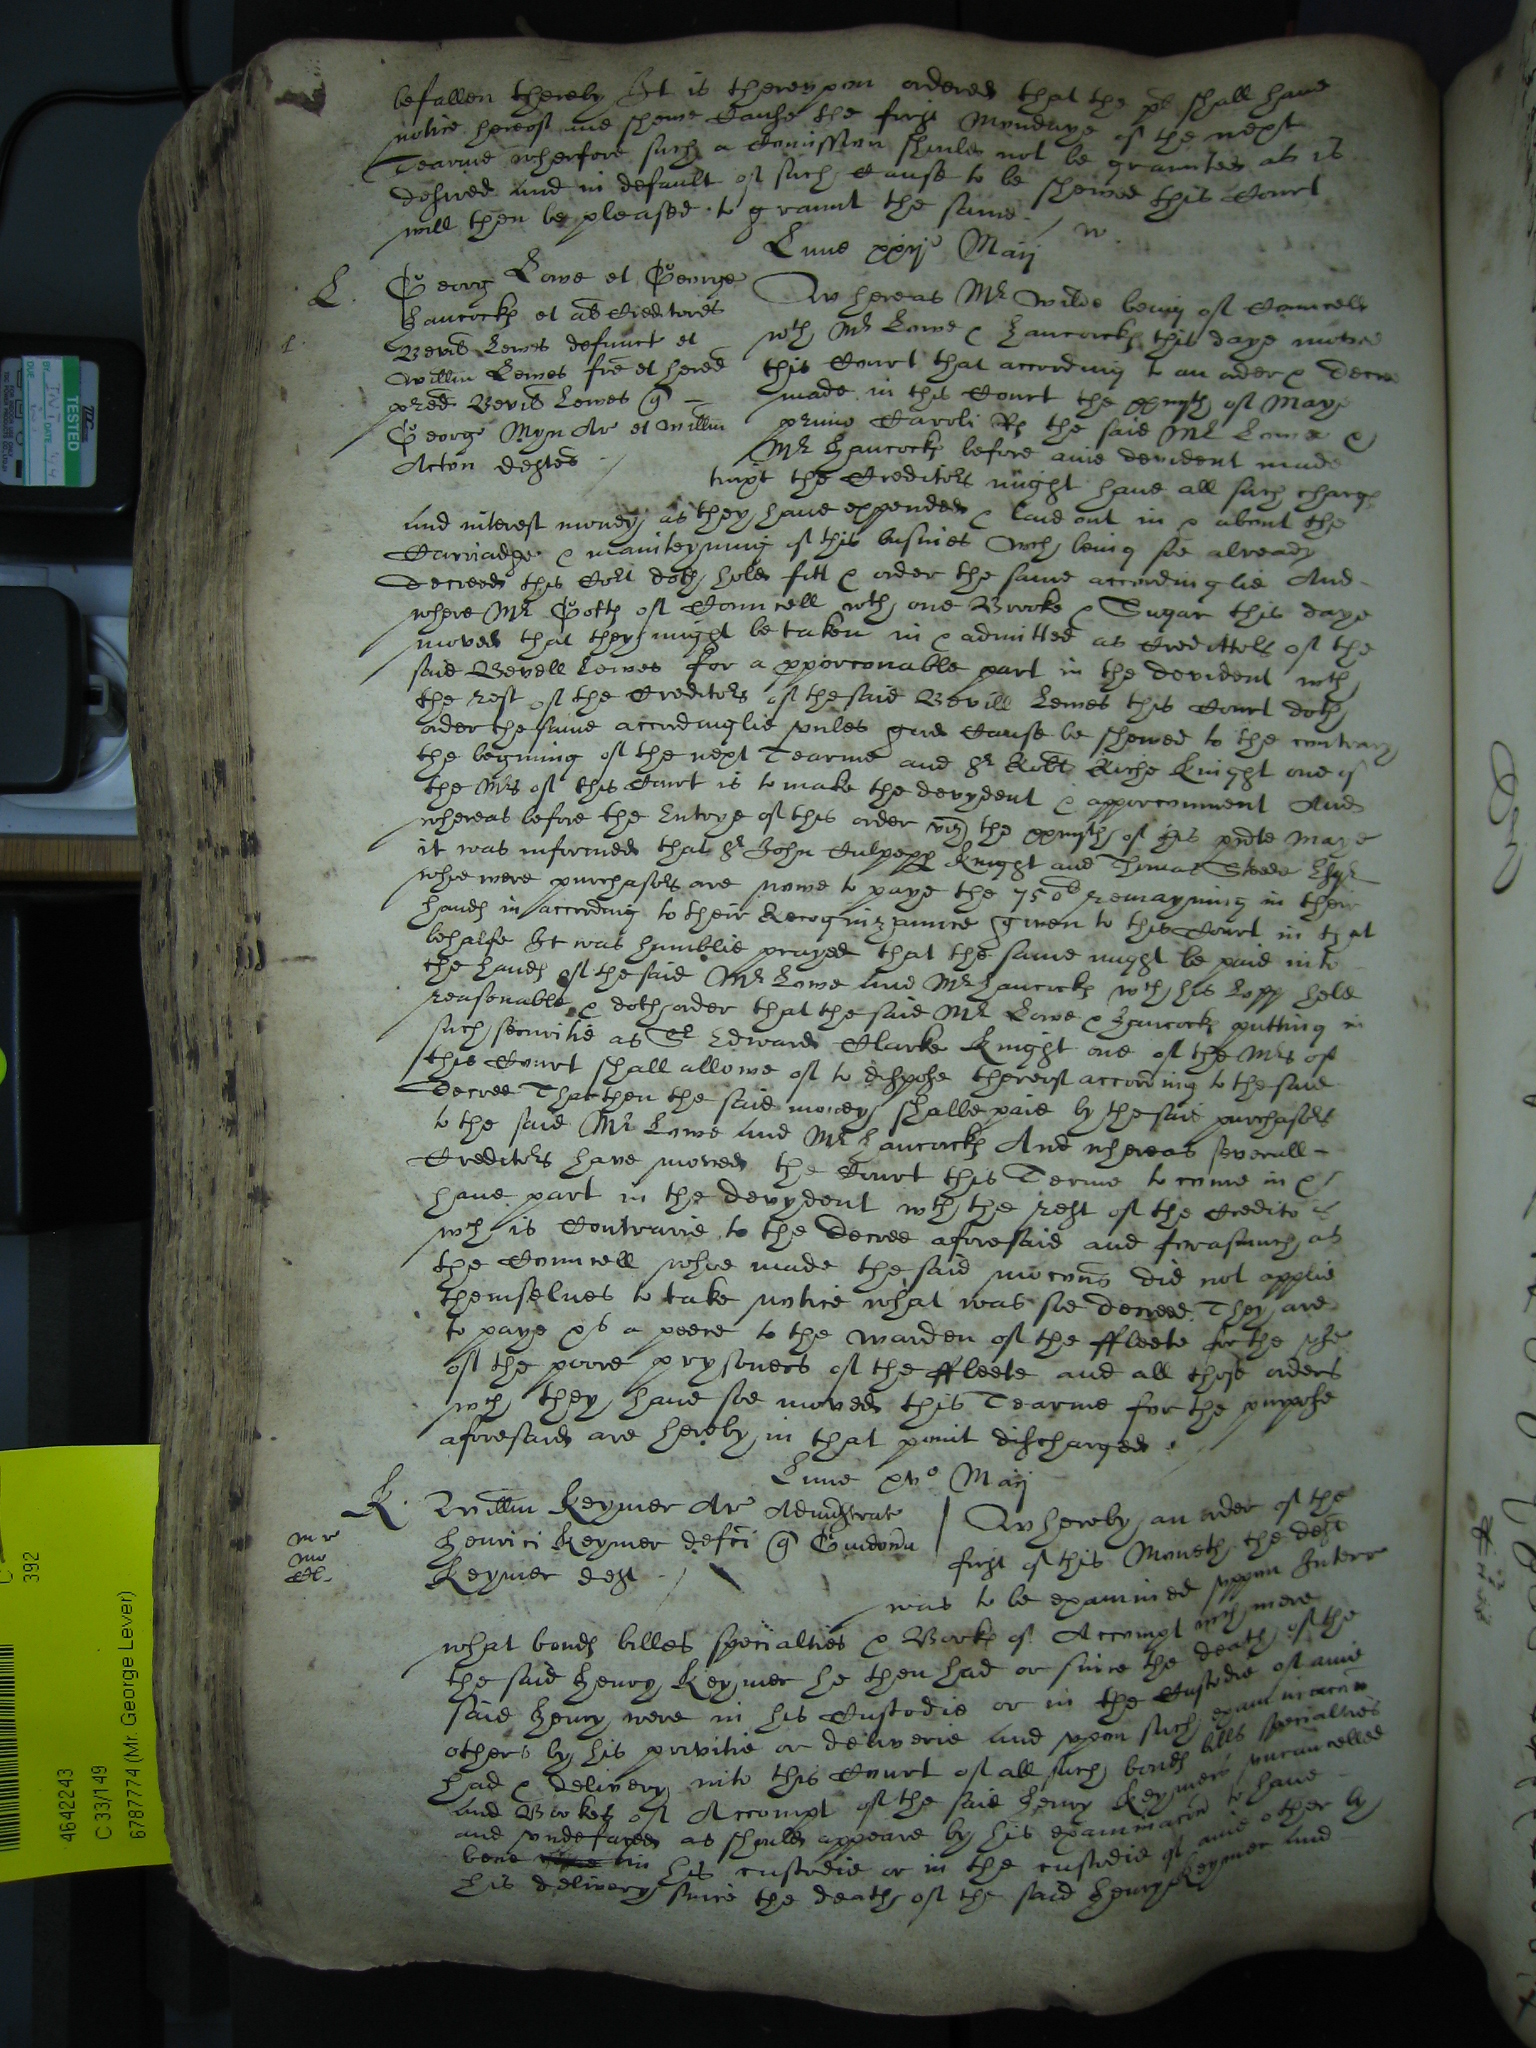 befallen thereby It is thereypon ordered that the plt shall have
notice hereof and shewe Cause the first Mundaye of the next
Tearme wherfore such a Comission should not be graunted as is
desired and in default of such Cause to be shewed this Court
will then be pleased to graunt the same
Lune Maij
L.
Georg Lowe et George
Hancock et als Creditores
Bevis Lewes defunct et
Willm Lewes fre et hered
pred Bevis Lewes q
George Myn Ar et Willm
Acton deftes
Whereas Mr Wilde being of Councell
wth Mr Lowe & Hancock this daye moved
this Court that according to an order & decree
made in this Court the of Maye
primo Caroli Rs the said Mr Lowe &
Mr Hancock before anie devident made
twixt the Creditors might have all such charges
and interest money as they have expended & laid out in & about the
Carriadge & mainteyning of this busines Wch being soe already
decreed this Cort doth hold fitt & order the same accordinglie And
where Mr Goth of Councell wth one Brooke & Sugar this daye
moved that they might be taken in & admitted as Credittors of the
said Bevell Lewes for a pporconable part in the devident wth
the rest of the Creditors of the said Bevill Lewes this Court doth
order the same accordinglie vnles good Cause be shewed to the contrary
the begining of the next Tearme and Sr Robt Riche Knight one of
the Mrs of this Court is to make the devydent & apporconment And
whereas before the Entrye of this order viz the of this pnte Maye
it was informed that Sr John Culpepp Knight and Thomas Steede Esqr
whoe were purchasors are nowe to paye the 750 remayning in their
hands in according to their Recognizaunce given to this Court in that
behalfe It was humblie prayed that the same might be paid into
the hands of the said Mr Lowe and Mr Hancock wch his Lopp held
reasonable & doth order that the said Mr Lowe & Hancock putting in
such securitie as Sr Edward Clarke Knight one of the Mrs of
this Court shall allowe of to dispose thereof according to the said
Decree That then the said money shalbe paid by the said purchasors
to the said Mr Lowe and Mr Hancock And whereas severall
Creditors have moved the Court this Terme to come in &
have part in the devydent wth the rest of the Creditors
wch is Contrarie to the decree aforesaid and forasmuch as
the Councell whoe made the said mocons did not applie
themselves to take notice what was soe decreed They are
to paye xs a peece to the Warden of the ffleete for the vse
of the poore prysoners of the ffleete and all those orders
wch they have soe moved this Tearme for the purpose
aforesaid are hereby in that point discharged
Lune xvo Maij
K.
Willm Keymer Ar Administrat
Henrici Keymer defci q Guidonu
Keymer deft
Whereby an order of the
first of this Moneth the deft
was to be examined vppon Interr
what bonds billes specialties & Books of Accompt wch were
the said Henry Keymer he then had or since the death of the
said Henry were in his Custodie or in the Custodie of anie
others by his privitie or deliverie and vpon such examinacion
had & delivery into this Court of all such bonds bills specialties
and Bookes of Accompt of the said Henry Keymers vncancelled
and vndefaced as should appeare by his examinacon to have
bene in his custodie or in the custodie of anie other by
his delivery since the death of the said Henry Keymer and
TESTED
392
4642243
C 33/149
6787774 (Mr. George Lever)